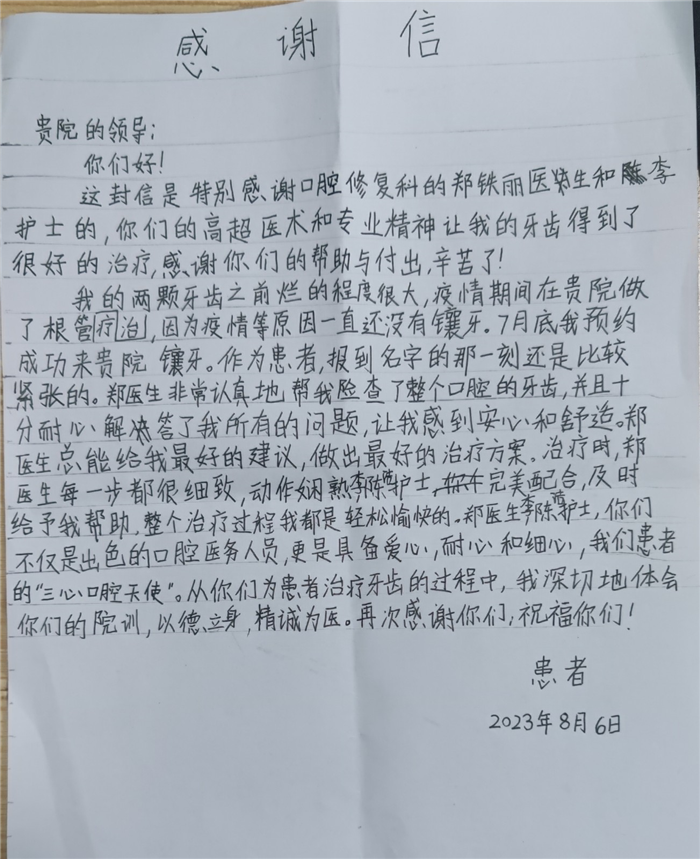 感谢信
贵院的领导:
你们好!
这封信是特别感谢口腔修复科的郑铁丽医生和李
护士的,你们的高超医术和专业精神让我的牙齿得到了
很好的治疗,感谢你们的帮助与付出,辛苦了!
我的两颗牙齿之前烂的程度很大,疫情期间在贵院做
了根管疗治,因为疫情等原因一直还没有镶牙。7月底我预约
成功来贵院镶牙。作为患者,报到名字的那一刻还是比较
紧张的。郑医生非常认真地帮我检查了整个口腔的牙齿,并且十
分耐心解答了我所有的问题,让我感到安心和舒适。郑
医生总能给我最好的建议,做出最好的治疗方案。治疗时,郑
医生每一步都很细致,动作娴熟李陈护士,完美配合,及时
给予我帮助,整个治疗过程我都是轻松愉快的。郑医生李陈护士,你们
不仅是出色的口腔医务人员,更是具备爱心,耐心和细心,我们患者
的“三心口腔天使”。从你们为患者治疗牙齿的过程中,我深切地体会
你们的院训,以德立身,精诚为医。再次感谢你们;祝福你们!
患者
2023年8月6日